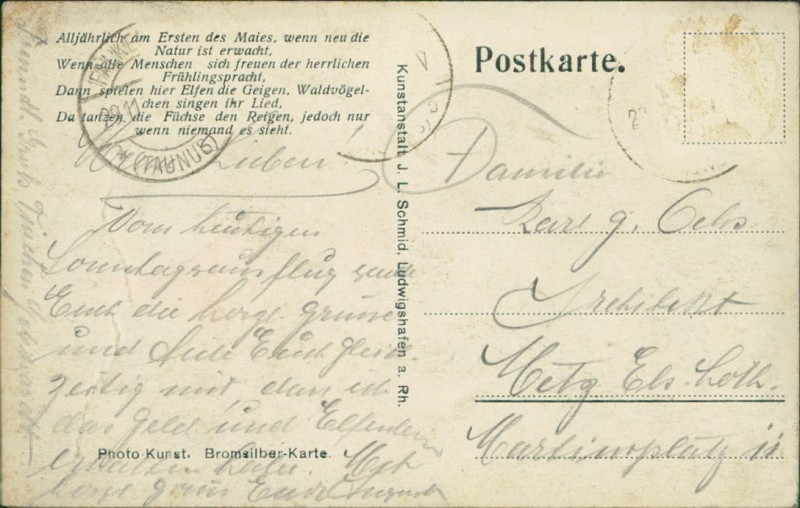 Alljährlich am Ersten des Maies, wenn neu die
Natur ist erwacht,
Wenn alle Menschen sich freuen der herrlichen
Frühlingspracht,
Dann spielen hier Elfen die Geigen, Waldvögel-
chen singen ihr Lied,
Da tanzen die Füchse den Reigen, jedoch nur
wenn niemand es sieht.
(TAUNUS)
Lieben!
Vom heutigen
Sonntagsausflug sende
Euch die herzl. Grüsse
und teile Euch gleich
zeitig mit, dass ich
das Geld und
erhalten habe. Mit
herzl. Gruss Euer
Photo-Kunst. Bromsilber-Karte.
Kunstanstalt J. L. Schmid, Ludwigshafen a. Rh.
Postkarte.
Familie
Karl g. Oehs
Architekt
Metz Els. Loth.
Martinsplatz 11